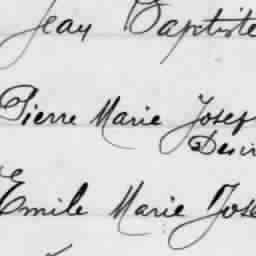 Jean Baptiste
Pierre Marie Josef
Emile Marie